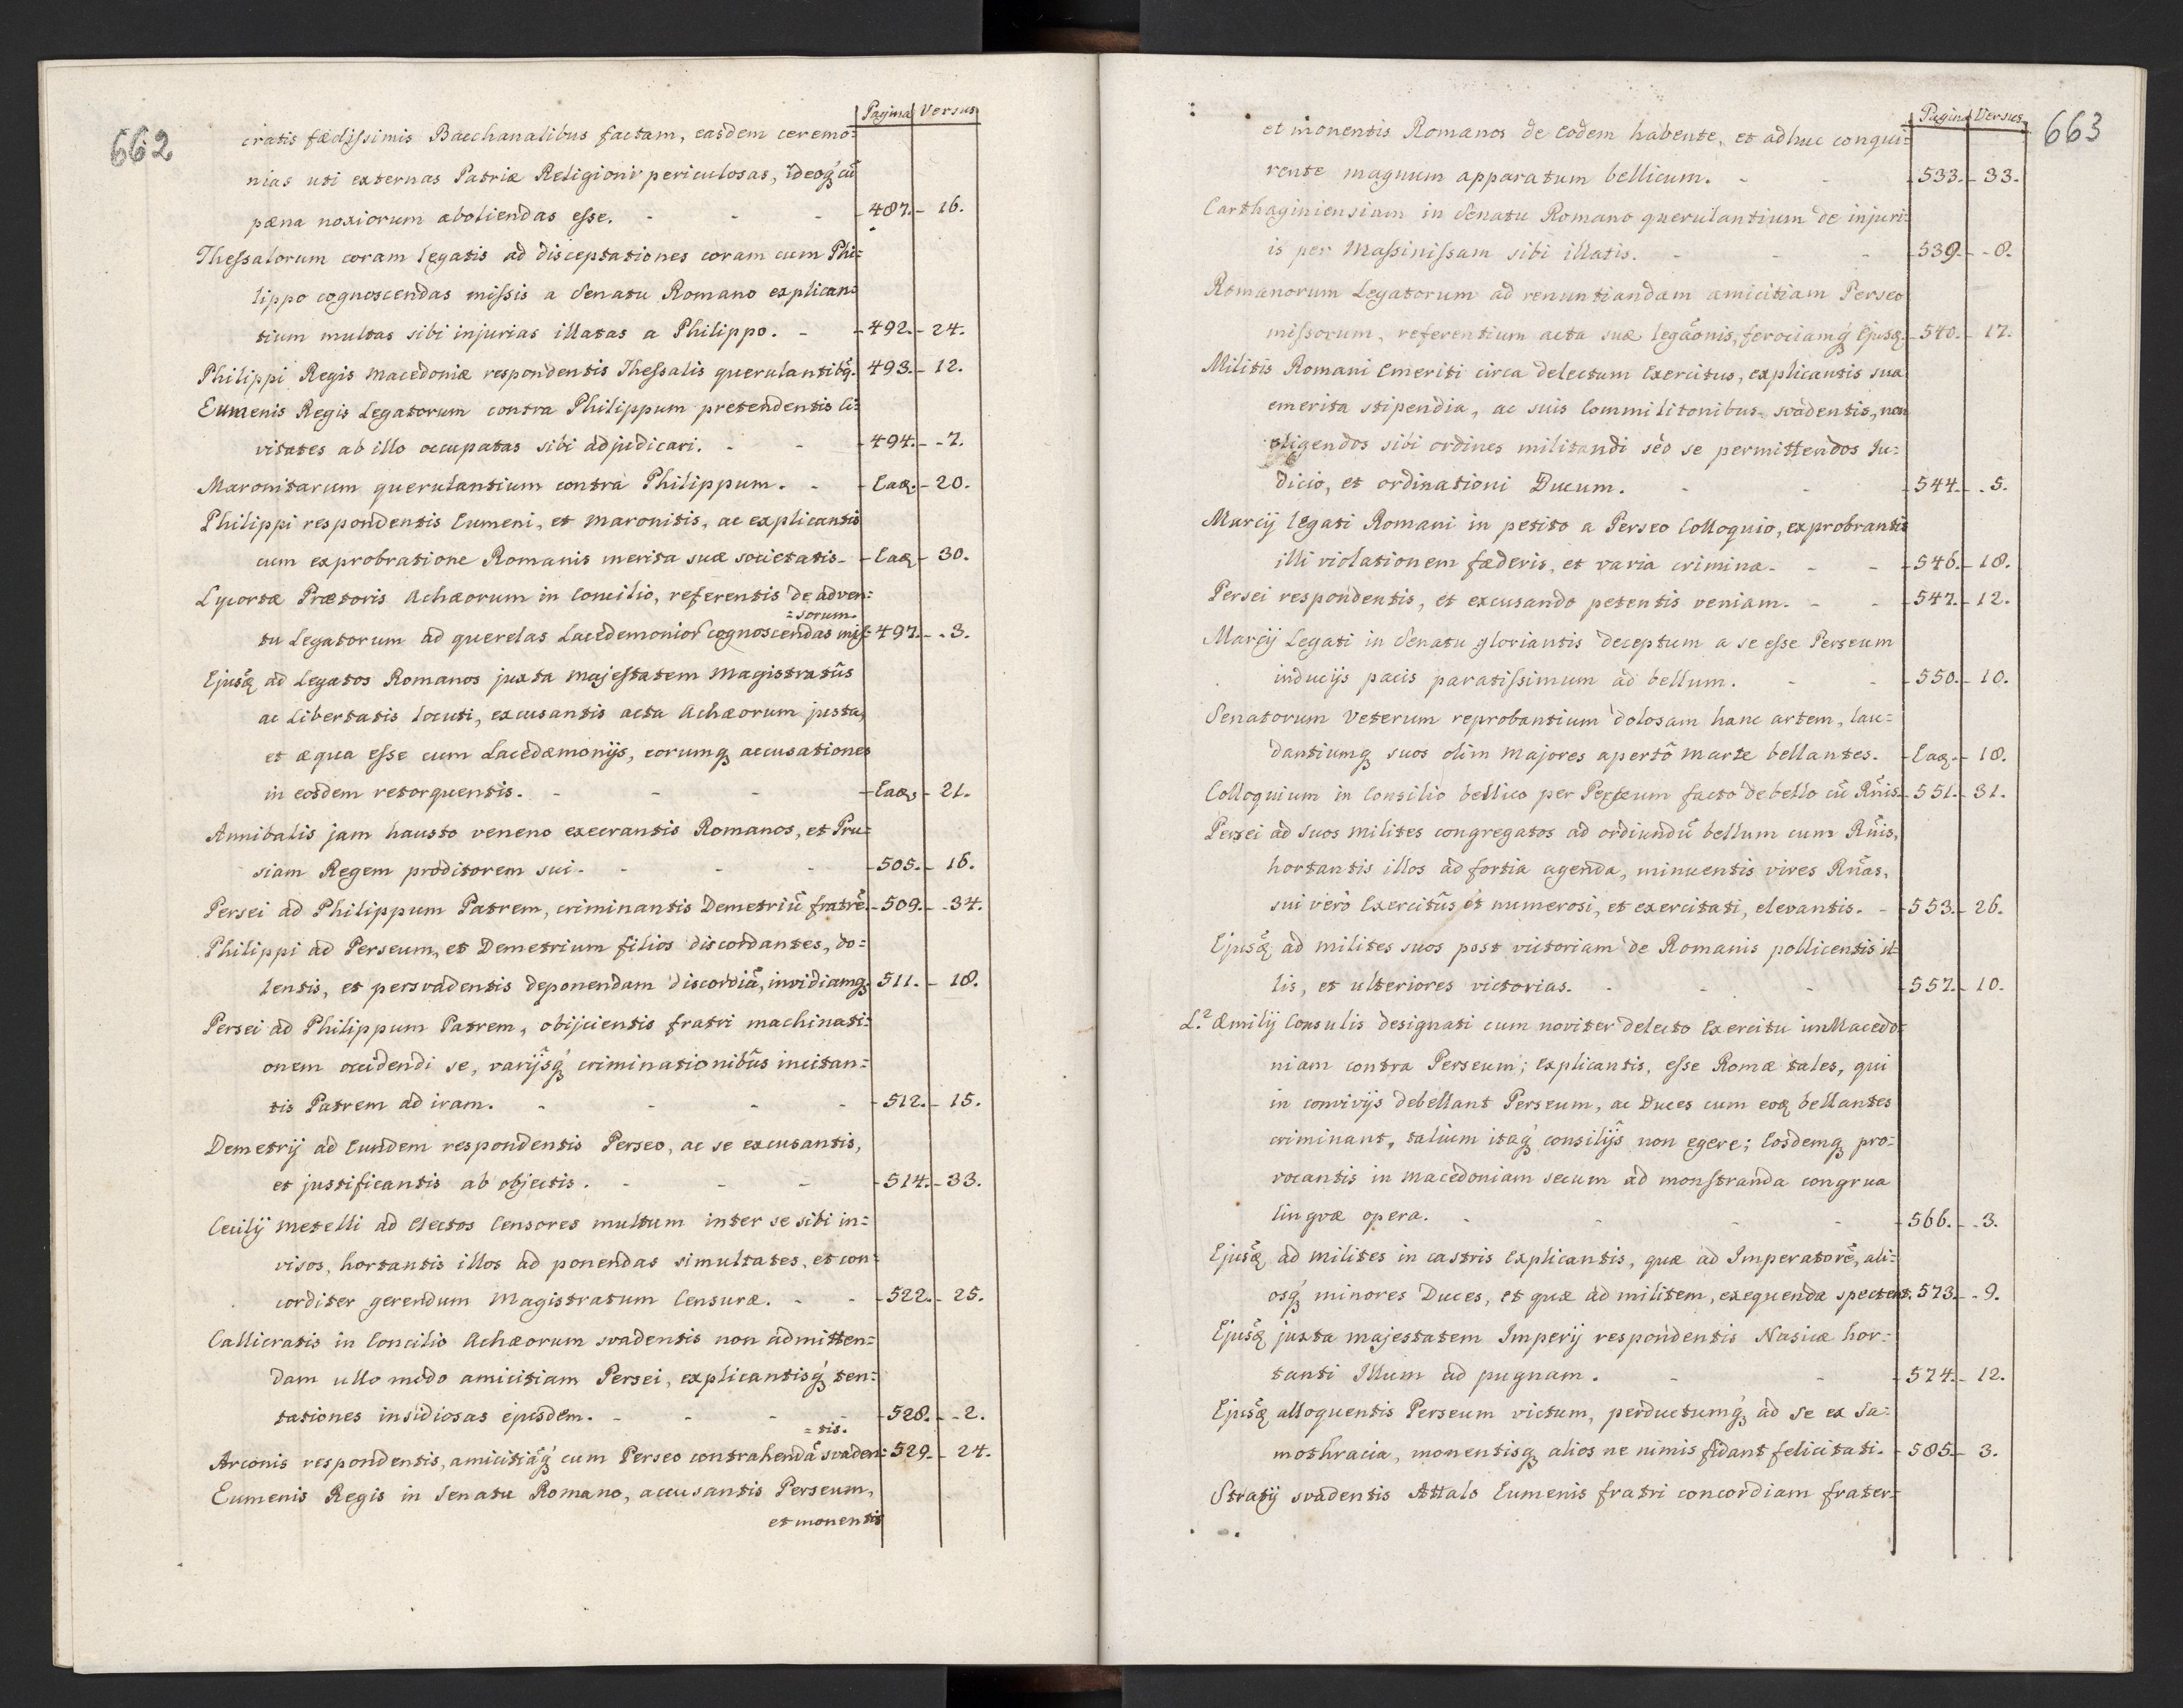 662
Pagina Versus
cratis fædissimis Bacchanalibus factam, easdem ceremo=
nias uti externas Patriæ Religioni periculosas, ideoq́ cū
pæna noxiorum aboliendas esse. - - - 487. - 16.
Thessalorum coram legatis ad disceptationes coram cum Phi=
lippo cognoscendas missis a Senatu Romano explican=
tium multas sibi injurias illatas a Philippo. - 492. - 24.
Philippi Regis Macedoniæ respondentis Thessalis querulantibq̃. 493. - 12.
Eumenis Regis Legatorum contra Philippum pretendentis Ci=
vitates ab illo occupatas sibi adjudicari. - - 494. - 7.
Maronitarum querulantium contra Philippum. - - Eaq. - 20.
Philippi respondentis Eumeni, et Maronitis, ac explicantis
cum exprobratione Romanis merita suæ societatis. - Eaq. - 30.
Lycortæ Prætoris Achæorum in Concilio, referentis de adven=
=sorum.
tu Legatorum ad querelas Lacedemonior̃ cognoscendas mis= 497. - 3.
Ejusq̃ ad Legatos Romanos juxta Majestatem Magistratũs
ac Libertatis locuti, excusantis acta Achæorum justa,
et æqua esse cum Lacedæmonijs, eorumq accusationes
in eosdem retorquentis. - - - Eaq. - 21.
Annibalis jam hausto veneno execrantis Romanos, et Pru=
siam Regem proditorem sui. - - - 505. - 16.
Persei ad Philippum Patrem, criminantis Demetriũ fratrẽ. - 509. - 34.
Philippi ad Perseum, et Demetrium filios discordantes, do=
lentis, et persvadentis deponendam discordiã, invidiamq 511. - 18.
Persei ad Philippum Patrem, obijcientis fratri machinati=
onem occidendi se, varijsq́ criminationibũs incitan=
tis Patrem ad iram. - - - - 512. - 15.
Demetrij ad Eundem respondentis Perseo, ac se excusantis,
et justificantis ab objectis. - - - 514. - 33.
Cecilij Metelli ad Electos Censores multum inter se sibi in=
visos, hortantis illos ad ponendas simultates, et con=
corditer gerendum Magistratum Censuræ. - - 522. - 25.
Callicratis in Concilio Achæorum svadentis non admitten=
dam ullo modo amicitiam Persei, explicantisq́ ten=
tationes insidiosas ejusdem. - - - - 528. - 2.
=tis.
Arconis respondentis, amicitiãq́ cum Perseo contrahendã svaden= 529. - 24.
Eumenis Regis in Senatu Romano, accusantis Perseum,
et monentis
663
Pagina Versus
et monentis Romanos de Eodem habente, et adhuc conqui=
rente magnum apparatum bellicum. - - 533. - 33.
Carthaginiensium in Senatu Romano querulantium de injuri=
is per Massinissam sibi illatis. - - - 539. - 8.
Romanorum Legatorum ad renuntiandam amicitiam Perseo
missorum, referentium acta suæ legãonis, ferociamq́ Ejusq̃. 540. - 17.
Militis Romani Emeriti circa delectum Exercitus, explicantis sua
emerita stipendia, ac suis Commilitonibus svadentis, non
eligendos sibi ordines militandi sed se permittendos Ju=
dicio, et ordinationi Ducum. - - 544. - 5.
Marcij legati Romani in petito a Perseo Colloquio, exprobrantis
illi violationem fæderis, et varia crimina. - - 546. - 18.
Persei respondentis, et excusando petentis veniam. - - 547. - 12.
Marcij Legati in Senatu gloriantis deceptum a se esse Perseum
inducijs pacis paratissimum ad bellum. - - 550. - 10.
Senatorum Veterum reprobantium dolosam hanc artem, lau=
dantiumq suos olim Majores apertô Marte bellantes. - Eaq. - 18.
Colloquium in Consilio bellico per Perseum facto de bello cũ Rñis. 551. - 31.
Persei ad suos milites congregatos ad ordiundũ bellum cum Rñis,
hortantis illos ad fortia agenda, minuentis vires Rñas,
sui verò Exercitũs et numerosi, et exercitati, elevantis. - 553. - 26.
Ejusq̃ ad milites suos post victoriam de Romanis pollicentis il=
lis, et ulteriores victorias. - - - 557. - 10.
L.² Æmilij Consulis designati cum noviter delecto Exercitu in Macedo=
niam contra Perseum; Explicantis, esse Romæ tales, qui
in convivijs debellant Perseum, ac Duces cum eoq bellantes
criminant, talium itaq́ consilijs non egere; Eosdemq pro=
vocantis in Macedoniam secum ad monstranda congrua
lingvæ opera. - - - - 566. - 3.
Ejusq̃ ad milites in castris Explicantis, quæ ad Imperatorẽ, ali=
osq́ minores Duces, et quæ ad militem, exequenda spectent. 573. - 9.
Ejusq̃ juxta majestatem Imperij respondentis Nasicæ hor=
tanti Illum ad pugnam. - - 574. - 12.
Ejusq̃ alloquentis Perseum victum, perductumq́ ad se ex Sa=
mothracia, monentisq alios ne nimis fidant felicitati. - 585. - 3.
Stratij svadentis Attalo Eumenis fratri concordiam frater=